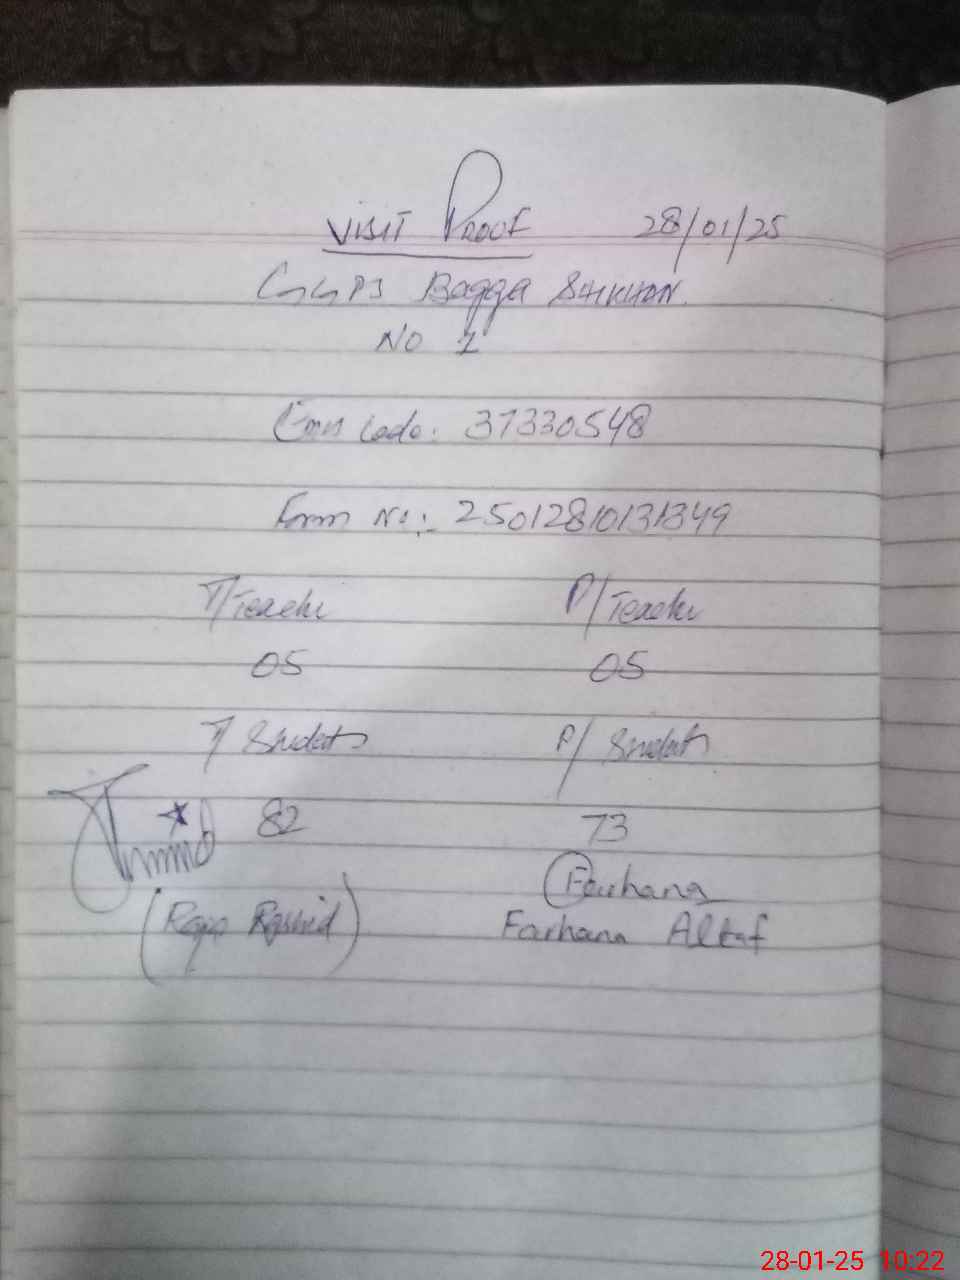 VISIT PROOF 28/01/25
GGPS Bagga SHKHAN.
NO 1
Emis Code: 37330548
Form No:- 25012810131349
T/Teacher P/Teacher
05 05
T/ Students P/ Students
82 73
Farhana
(Raja Rashid) Farhana Altaf
28-01-25 10:22